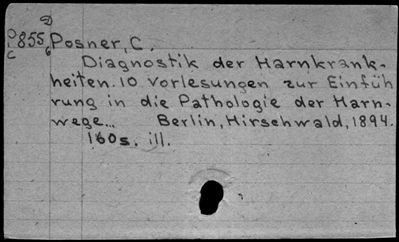 D
P 855 Posner, C.
C 6
Diagnostik der Harnkrank-
heiten. 10 Vorlesungen zur Einfüh
rung in die Pathologie der Harn-
wege... Berlin, Hirschwald, 1894.
160s. ill.